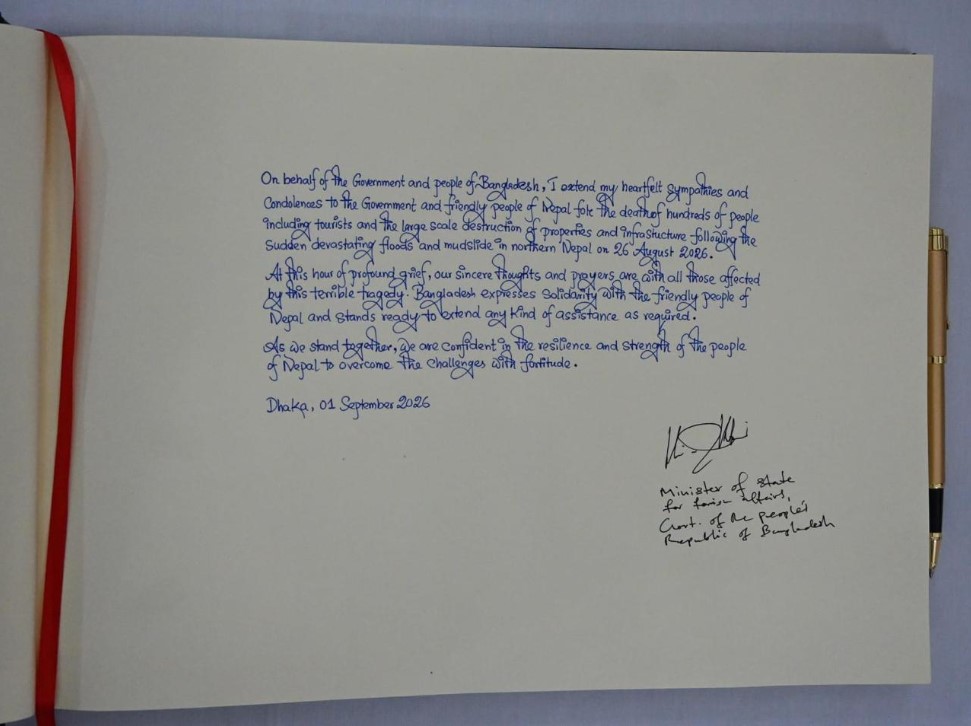 On behalf of the Government and people of Bangladesh, I extend my heartfelt Sympathies and
Condolences to the Government and friendly people of Nepal for the death of hundreds of people
including tourists and the large scale destruction of properties and infrastucture following the
Sudden devastating floods and mudslide in northern Nepal on 26 August 2026.
At this hour of profound grief, our sincere thoughts and prayers are with all those affected
by this terrible tragedy. Bangladesh expresses Solidarity with the friendly people of
Nepal and stands ready to extend any kind of assistance as required.
As we stand together, we are confident in the resilience and strength of the people
of Nepal to overcome the challenges with fortitude.
Dhaka, 01 September 2026
Minister of State
for Foreign Affairs,
Govt. of the People's
Republic of Bangladesh